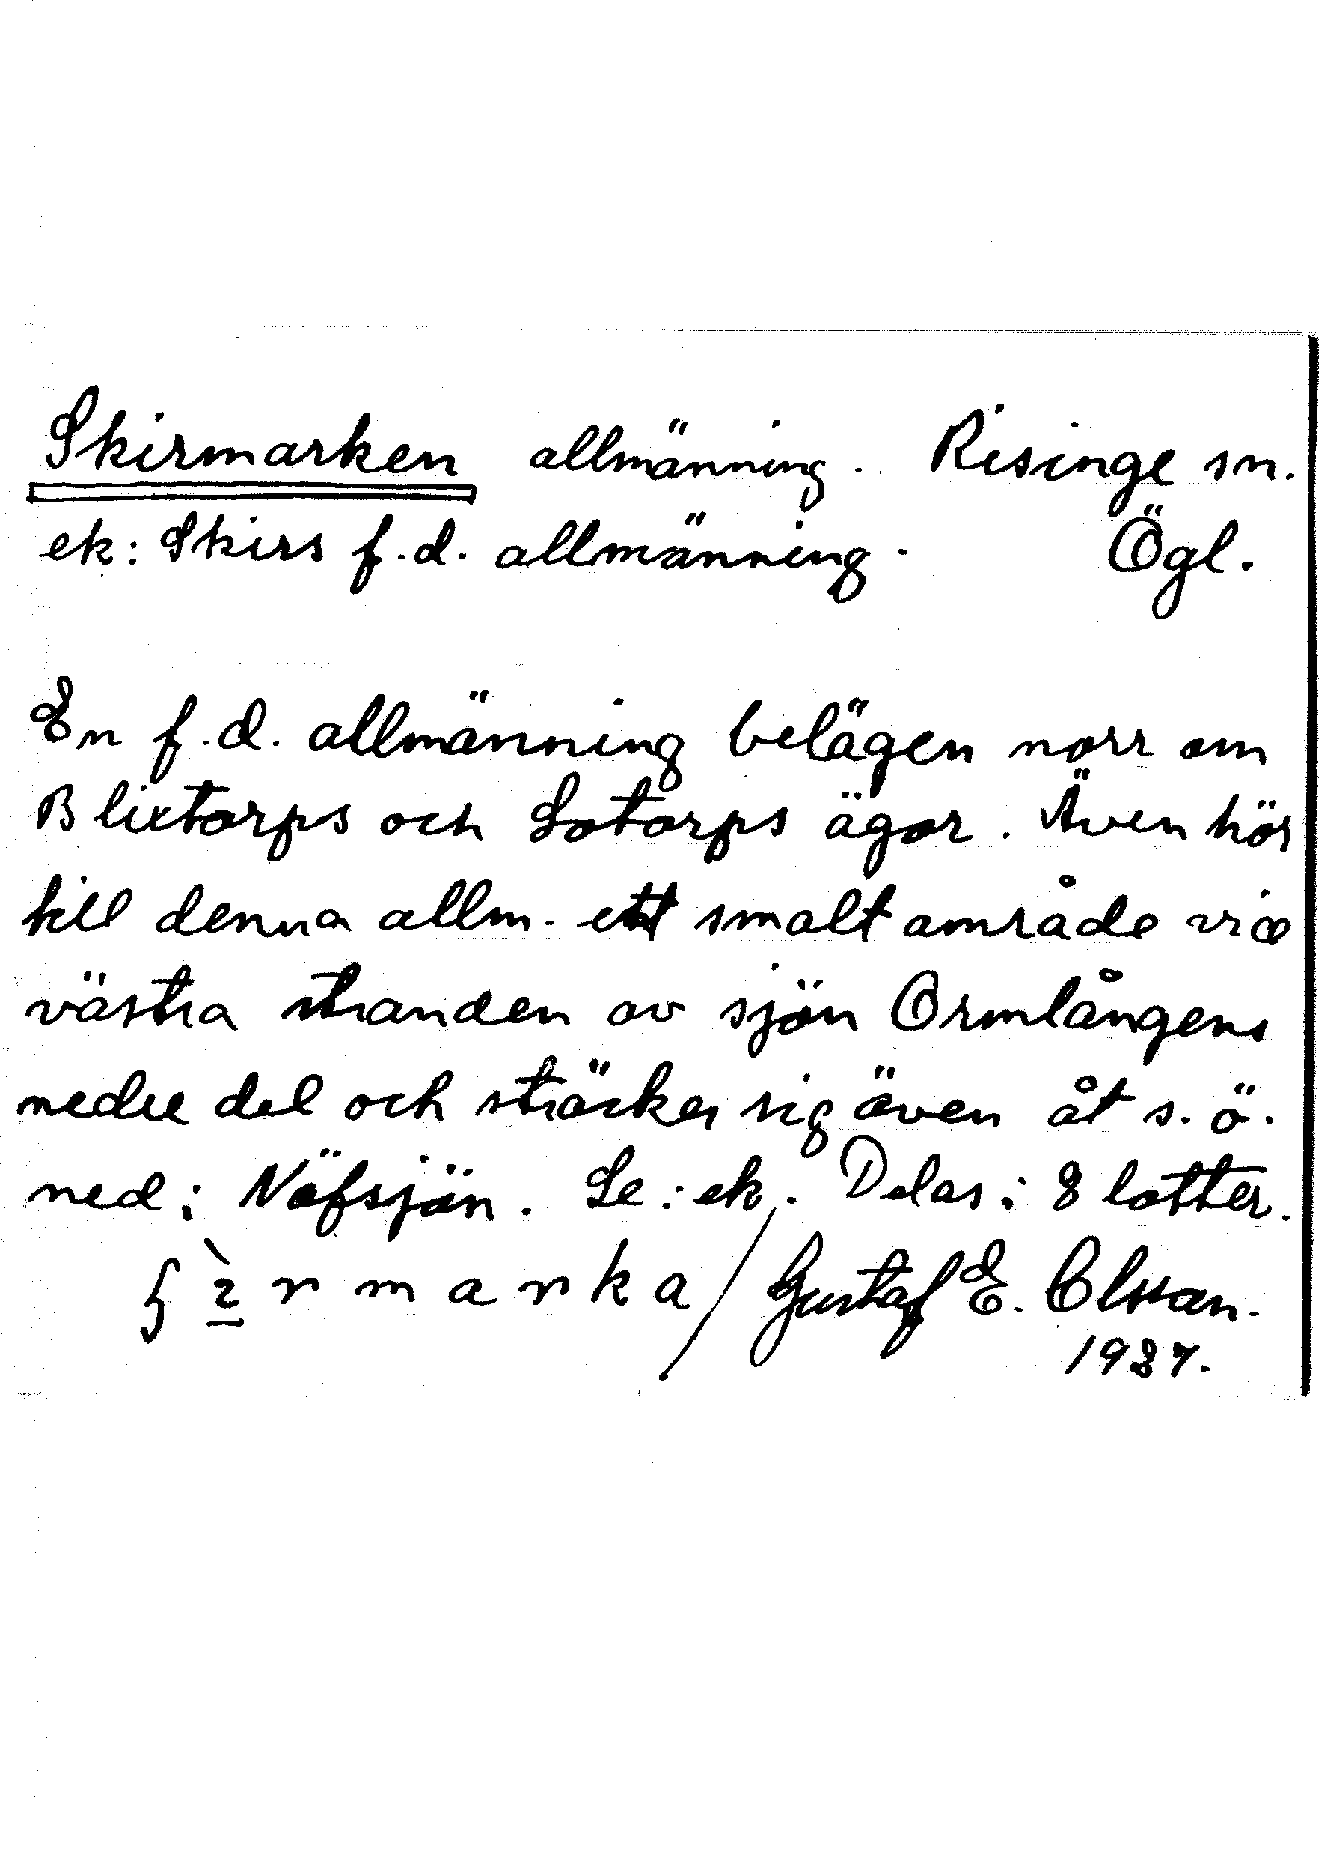 Skirmarken allmänning. Risinge sn.
ek: Skirs f.d. allmänning. Ögl.
En f.d. allmänning belägen norr om
Blixtorps och Lotorps ägor. Även hör
till denna allm. ett smalt område vid
västra stranden av sjön Ormlångens
nedre del och sträcker sig även åt s.ö.
ned i Näfsjön. Se: ek. Delas i 8 lotter.
rmarka / Gustaf E. Olsson.
1937.